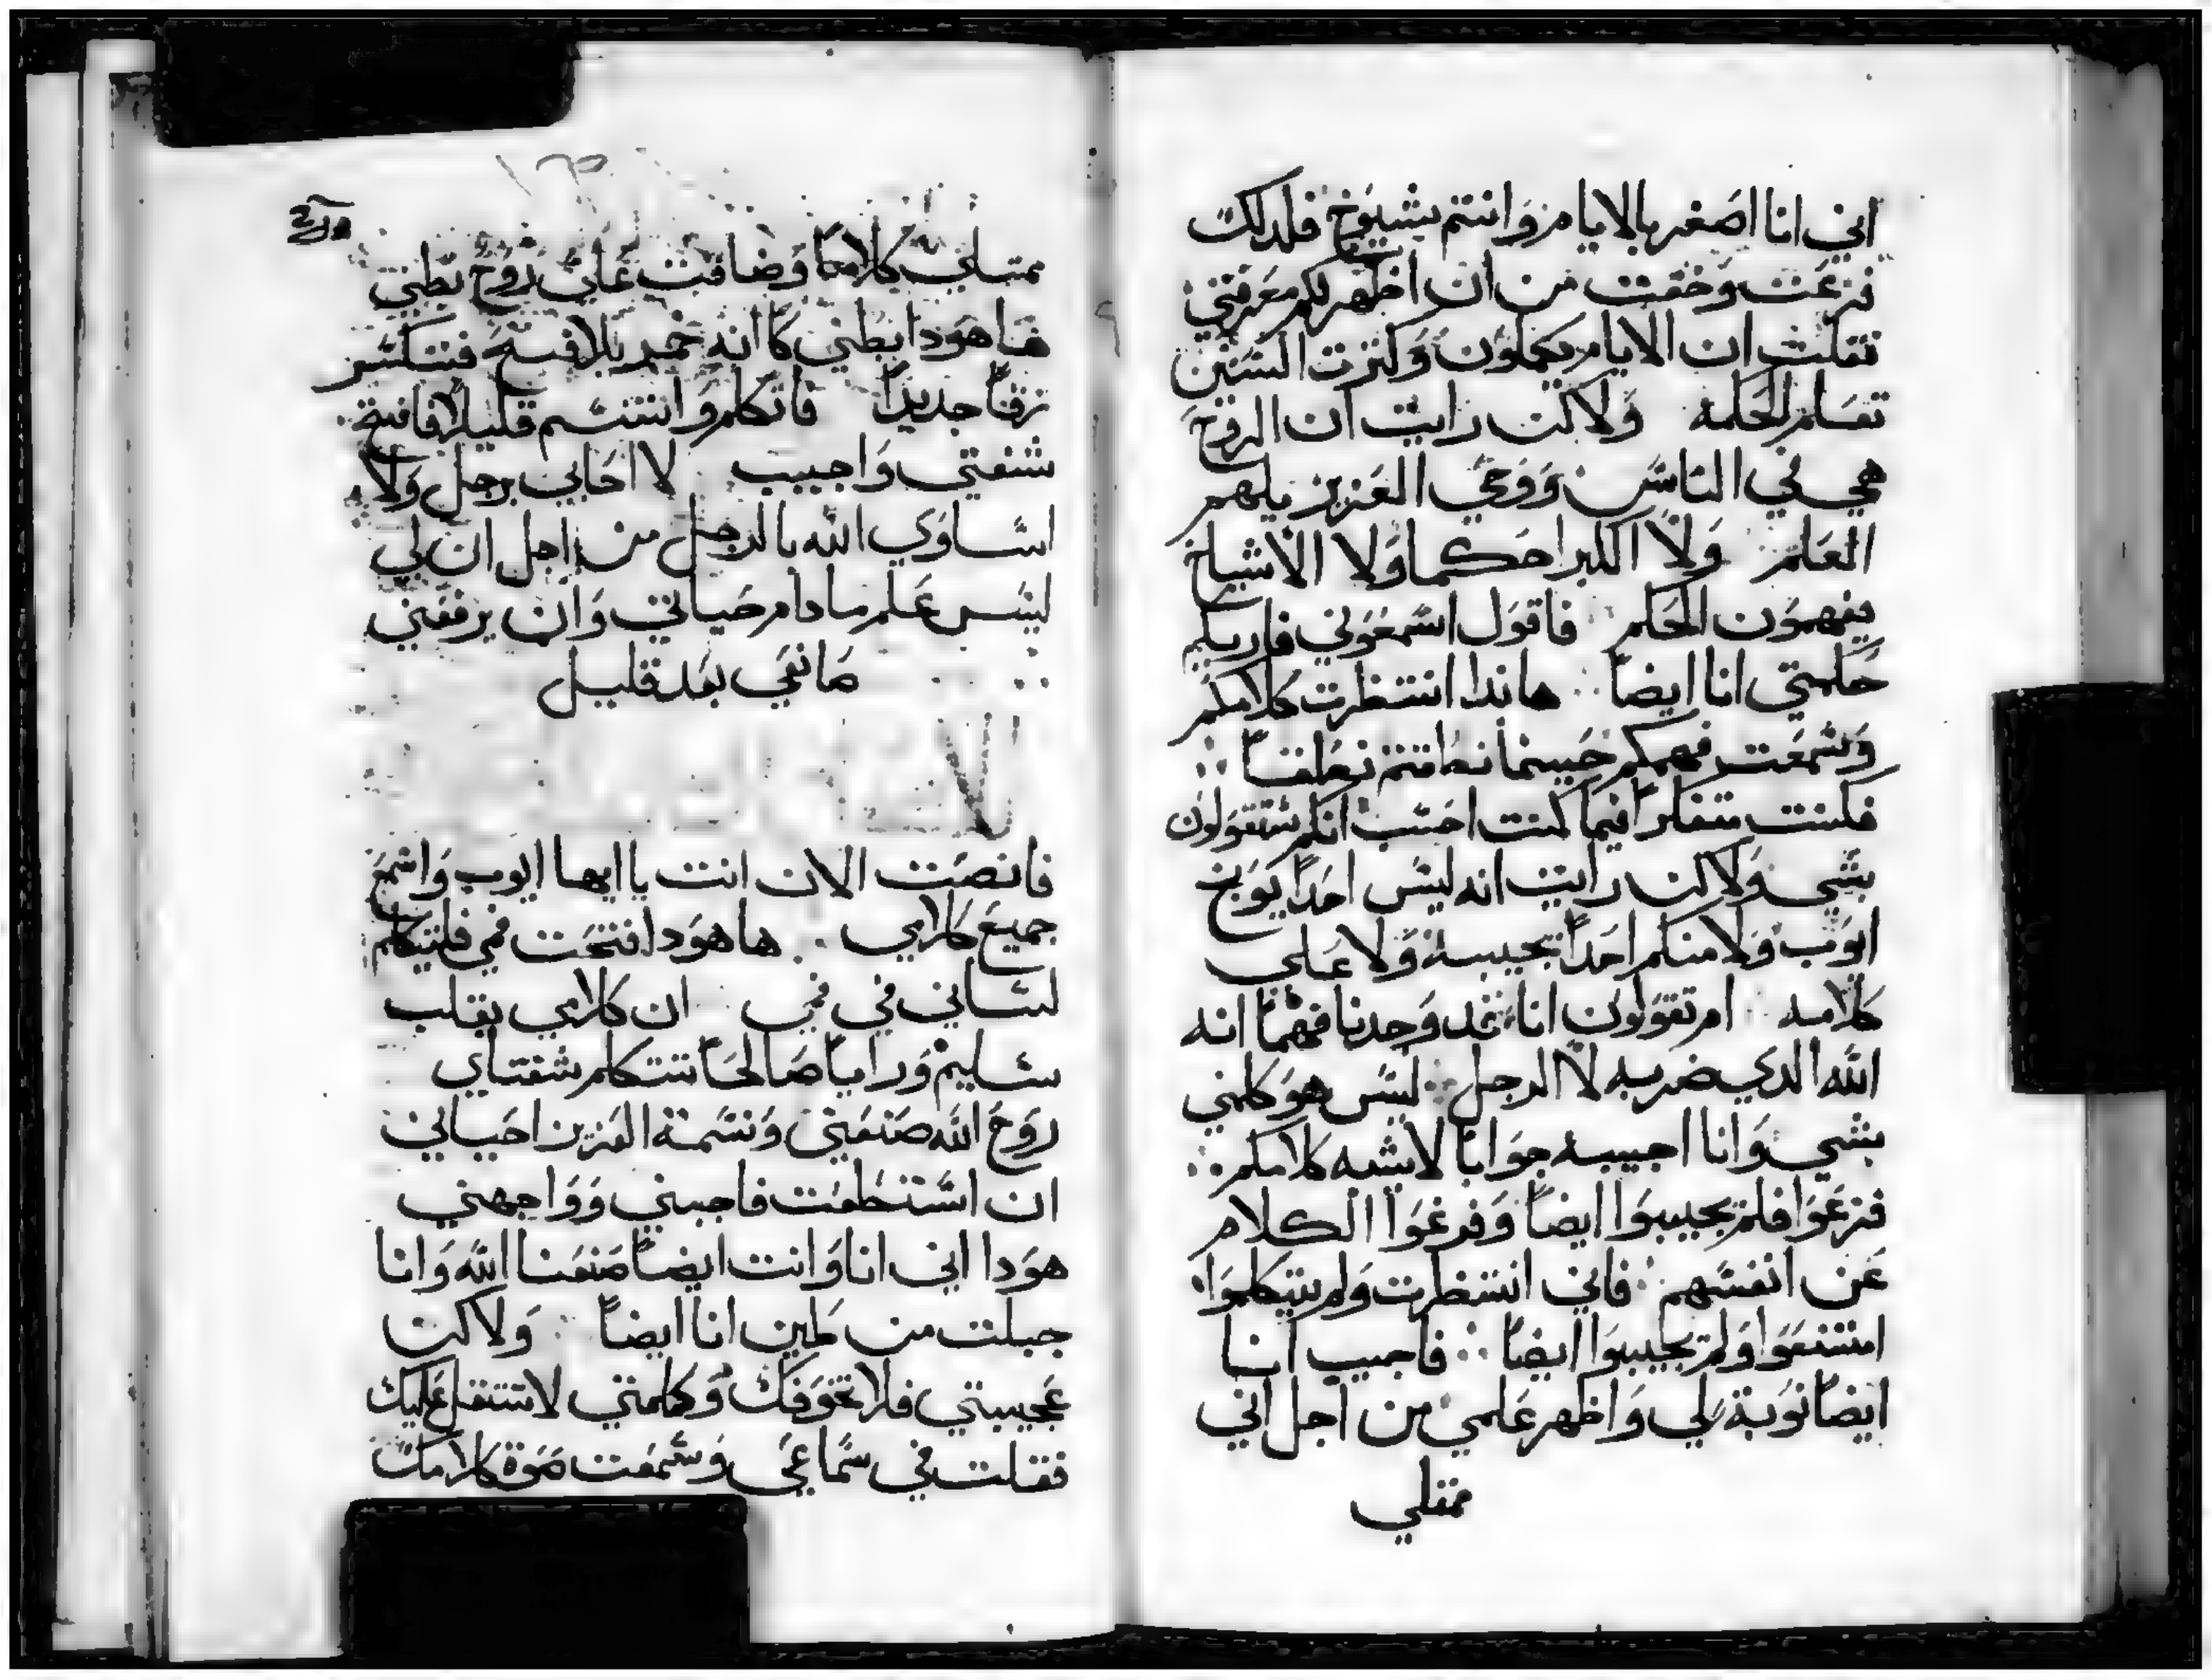 اني انا اصغر بالايام وانتم شيوخ فلدلك
فزعت وخفت من ان اظهر لكم معرفتي
فقلت ان الايام يكملون وكثرت السنين
تعلم الحكمه ولاكن رايت ان الروح
هي في الناس ووحي العزيز يلهم
العلم ولا الكبرا حكما ولا الاشياخ
يفهمون الحكم فاقول اسمعوني فاريكم
حكمتي انا ايضاً هاندا انتظرت كلامكم
وسمعت فهمكم حينما نطقتم
فكنت متفكراً فيما كنت احسب انكم ستقولون
بشي ولاكن رايت انه ليس احداً يوبخ
ايوب ولا منكم احداً يجيبه ولا علي
كلامه ام تقولون انا قد وجدنا فهماً انه
الله الدي ضربه لا الرجل ليس هو كلمني
بشي وانا اجيبه جواباً لا يشبه كلامكم
فزعوا فلم يجيبوا ايضاً وفرغوا الكلام
عن انفسهم فاني انتظرت ولم يتكلموا
امتنعوا ولم يجيبوا ايضاً فاجيب انا
ايضاً نوبة لي واظهر علمي من اجل اني
ممتلي
ممتلي كلاماً وضاقت علي روح بطني
هاهودا بطني كانه خمير بلا فيح فتنكسر
زقاً جديداً فاتكلم وانتسم قليلا فافتح
شفتي واجيب لا احابي برجل ولا
اساوي الله بالرجل من اجل ان لي
ليس علم ما دام حياتي وان يرفعني
صانعي بعد قليل
فانصت الان انت يا ايها ايوب واسمع
جميع كلامي هاهودا فتحت فمي فليتكلم
لساني في فمي ان كلامي بقلب
سليم وراياً صالحاً تتكلم شفتاي
روح الله صنعني ونسمة العزيز احياني
ان استطعت فاجبني وواجهني
هودا اني انا وانت ايضاً صنعنا الله وانا
جبلت من طين انا ايضاً ولاكن
عجيبتي فلا تخوفك وكلمتي لا تتقل عليك
فقلت في سماعي وسمعت صوة كلامك